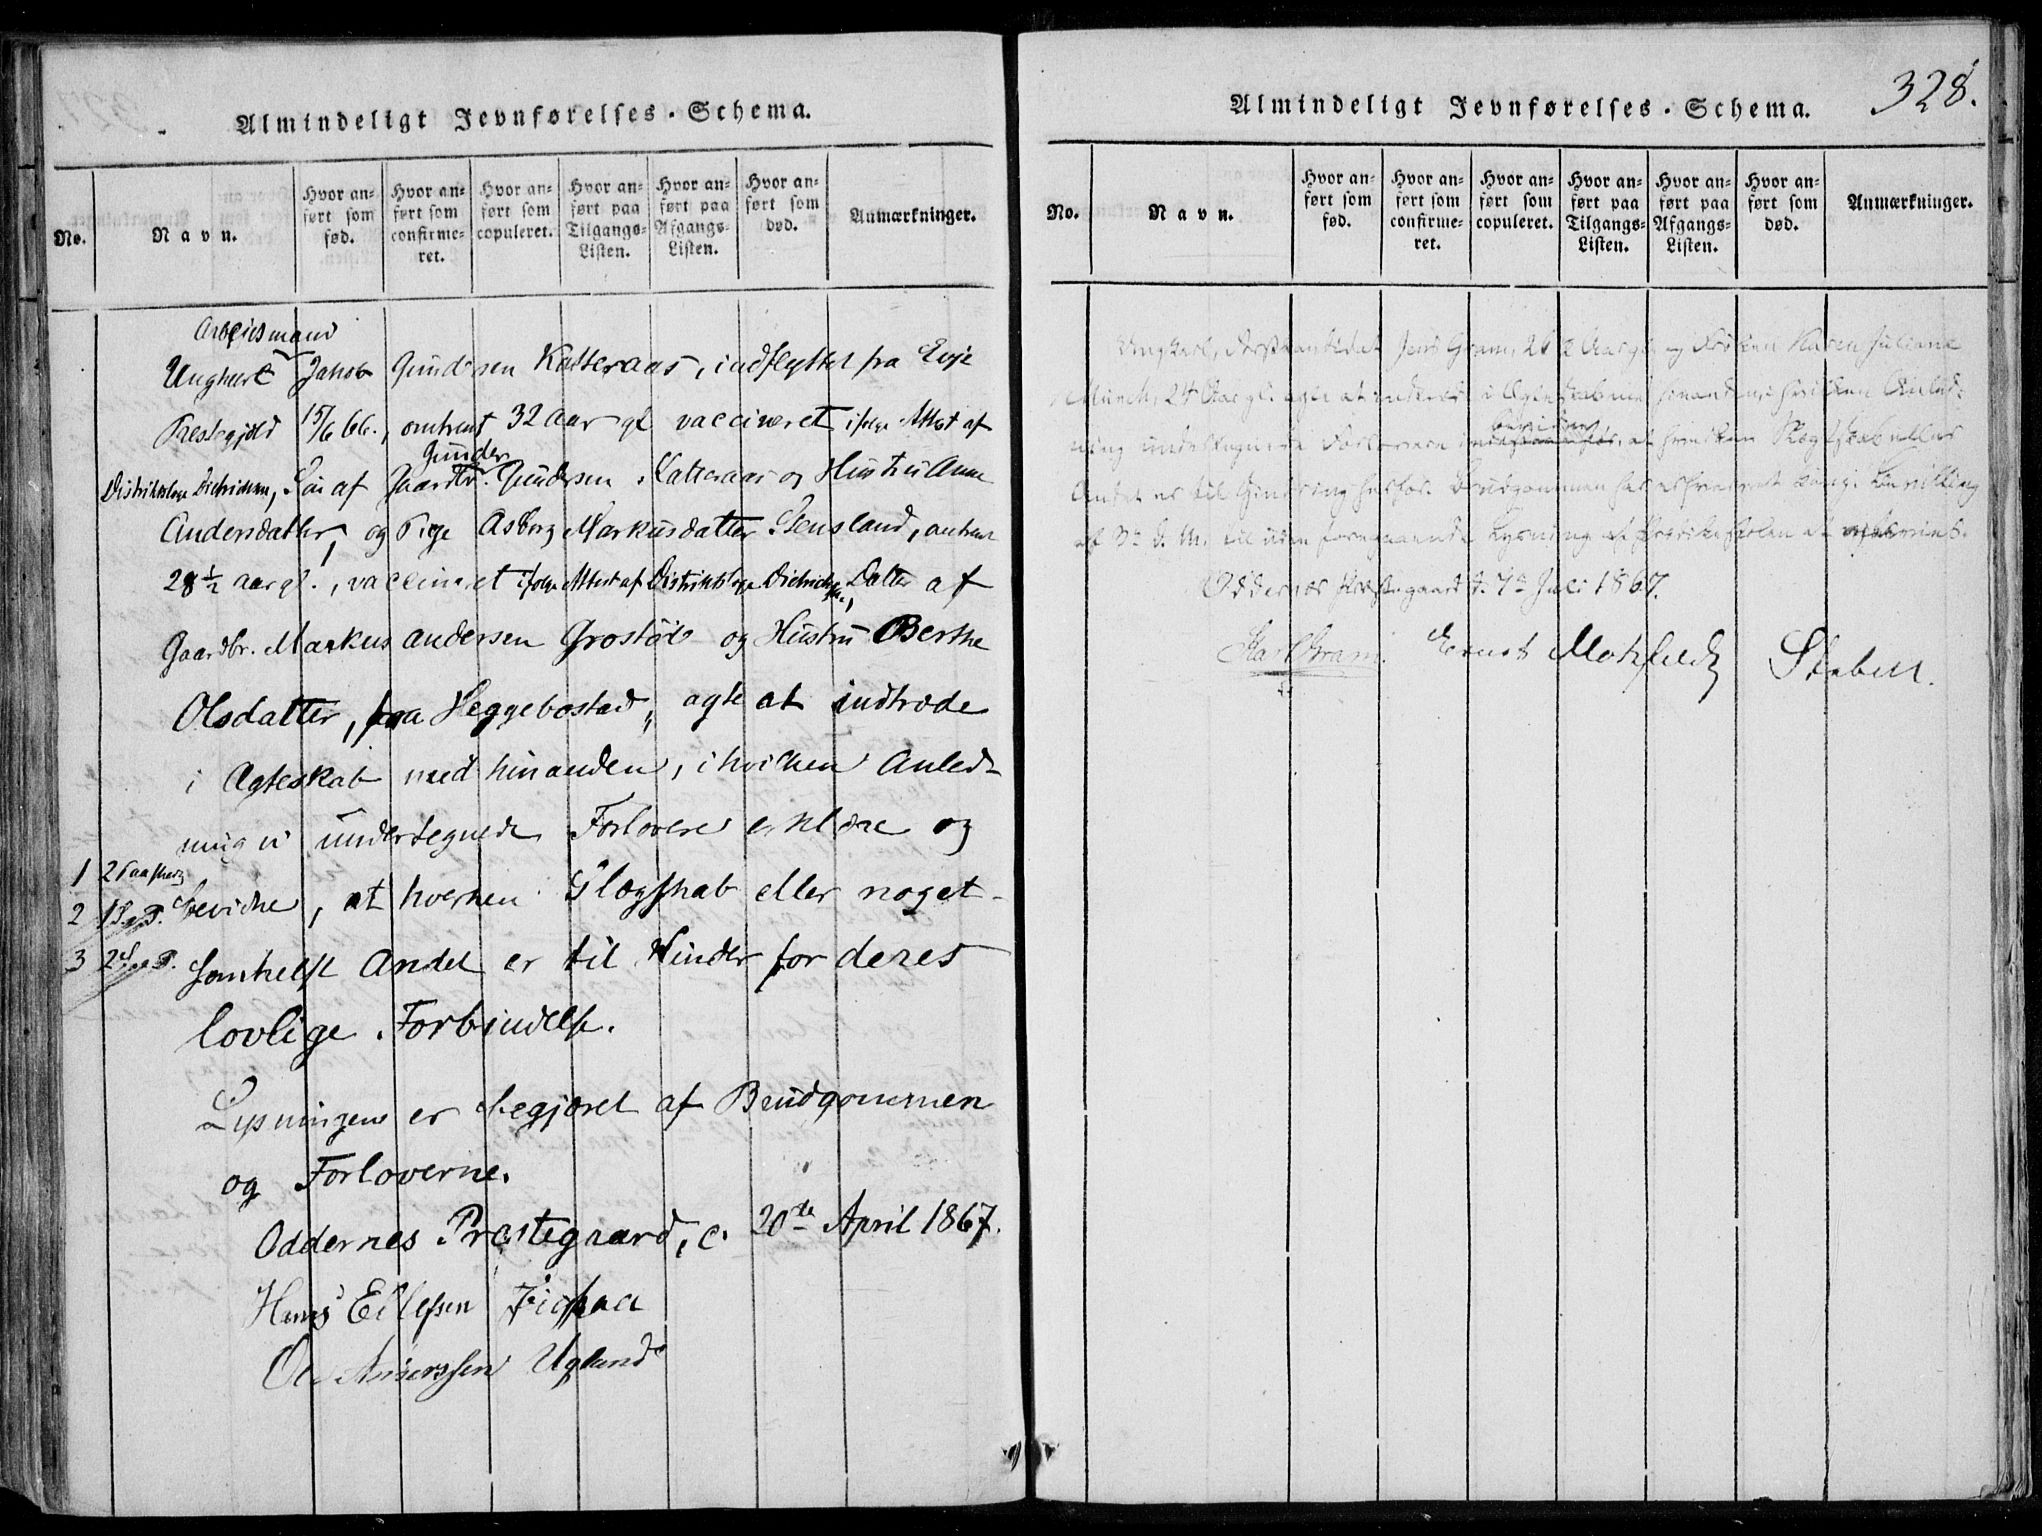 Almindeligt Jevnførelses-Schema.
No.
Navn.
Hvor an-
ført som
fød.
Hvor an-
ført som
confirme-
ret.
Hvor an-
ført som
copuleret.
Hvor an-
ført paa
Tilgangs-
Listen.
Hvor an-
ført paa
Afgangs-
Listen.
Hvor an-
ført som
død.
Anmærkninger.
Arbeidsmand
Ungkarl Jakob Gundersen Katteraas, indflyttet fra Evje
Prestegjeld 15/6 66., omtrent 32 Aar gl vaccineret ifølge Attest af
Gunder
Distriktslæge Dietrichson, Søn af Gaardbr. Gundersen Katteraas og Hustru Anne
Andersdatter, og Pige Asborg Markusdatter Sensland, omtrent
28 1/2 aar gl., vaccineret ifølge Attest af Distriktslæge Dietrichson, Datter af
Gaardbr. Markus Andersen Grostøl og Hustru Berthe
Olsdatter, fra Heggebostad, agte at indtræde
i Ægteskab med hinanden, i hvilken Anled-
ning vi undertegnede Forlovere erklære og
1 2 Paaskedg
bevidne, at hverken Slægskab eller noget-
2 1 S. e. P.
somhelst Andet er til Hinder for deres
3 2 S. e. P.
lovlige Forbindelse.
Lysningen er begjæret af Brudgommen
og Forloverne.
Oddernes Præstegaard, d. 20de April 1867.
Hans Ellefsen
Ole Anderssen Ugland
328.
Almindeligt Jevnførelses-Schema.
No.
Navn.
Hvor an-
ført som
fød.
Hvor an-
ført som
confirme-
ret.
Hvor an-
ført som
copuleret.
Hvor an-
ført paa
Tilgangs-
Listen.
Hvor an-
ført paa
Afgangs-
Listen.
Hvor an-
ført som
død.
Anmærkninger.
Ungkarl, Jens Gram, Aar gl. og Frøken Karen Juliane
Münch, 24 Aar gl. agte at indtræde i Ægteskab med hinanden, i hvilken Anled-
bevidne
ning undertegnede Forlovere at hverken Slægtskab eller
Andet er til Hindring herfor. Brudgommen har erhvervet Kongl. Bevilling
af til uden foregaaende Lysning af Prædikestolen at
Oddernes Præstegaard d. 7de Juli 1867.
Gram. Ernst Motzfeldt Stabell.